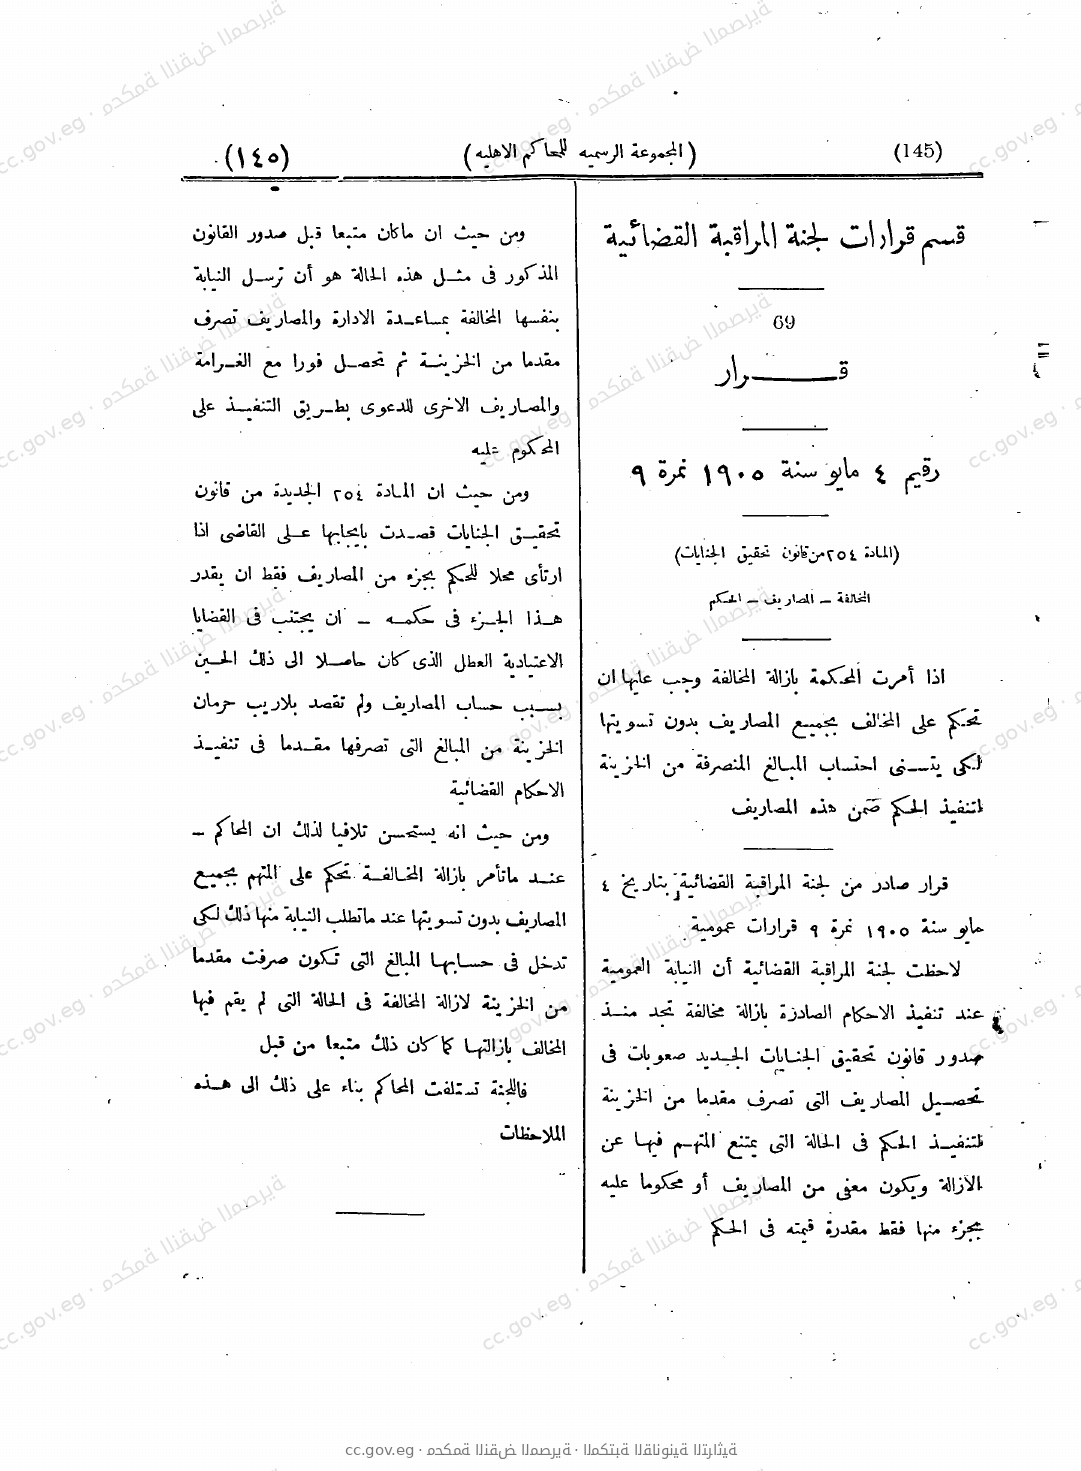 (145)
(المجموعة الرسميه للمحاكم الاهليه)
(١٤٥)
قسم قرارات لجنة المراقبة القضائية
69
قـــــرار
رقيم ٤ مايو سنة ١٩٠٥ نمرة ٩
(المادة ٢٥٤ من قانون تحقيق الجنايات)
المخالفة – المصاريف – الحكم
اذا أمرت المحكمة بازالة المخالفة وجب عليها ان
تحكم على المخالف بجميع المصاريف بدون تسويتها
لكى يتسنى احتساب المبالغ المنصرفة من الخزينة
لتنفيذ الحكم ضمن هذه المصاريف
قرار صادر من لجنة المراقبة القضائية بتاريخ ٤
مايو سنة ١٩٠٥ نمرة ٩ قرارات عمومية
لاحظت لجنة المراقبة القضائية أن النيابة العمومية
عند تنفيذ الاحكام الصادرة بازالة مخالفة تجد منذ
صدور قانون تحقيق الجنايات الجديد صعوبات فى
تحصيل المصاريف التى تصرف مقدما من الخزينة
لتنفيذ الحكم فى الحالة التى يمتنع المتهم فيها عن
الازالة ويكون معفى من المصاريف أو محكوما عليه
بجزء منها فقط مقدرة قيمته فى الحكم
ومن حيث ان ماكان متبعا قبل صدور القانون
المذكور فى مثل هذه الحالة هو أن ترسل النيابة
بنفسها المخالفة بمساعدة الادارة والمصاريف تصرف
مقدما من الخزينة ثم تحصل فورا مع الغرامة
والمصاريف الاخرى للدعوى بطريق التنفيذ على
المحكوم عليه
ومن حيث ان المادة ٢٥٤ الجديدة من قانون
تحقيق الجنايات قصدت بايجابها على القاضى اذا
ارتأى محلا للحكم بجزء من المصاريف فقط ان يقدر
هذا الجزء فى حكمه – ان يجتنب فى القضايا
الاعتيادية العطل الذى كان حاصلا الى ذلك الحين
بسبب حساب المصاريف ولم تقصد بلاريب حرمان
الخزينة من المبالغ التى تصرفها مقدما فى تنفيذ
الاحكام القضائية
ومن حيث انه يستحسن تلافيا لذلك ان المحاكم –
عند ماتأمر بازالة المخالفة تحكم على المتهم بجميع
المصاريف بدون تسويتها عند ماتطلب النيابة منها ذلك لكى
تدخل فى حسابها المبالغ التى تكون صرفت مقدما
من الخزينة لازالة المخالفة فى الحالة التى لم يقم فيها
المخالف بازالتها كما كان ذلك متبعا من قبل
فاللجنة تستلفت المحاكم بناء على ذلك الى هذه
الملاحظات
cc.gov.eg · محكمة النقض المصرية · المكتبة القانونية التراثية